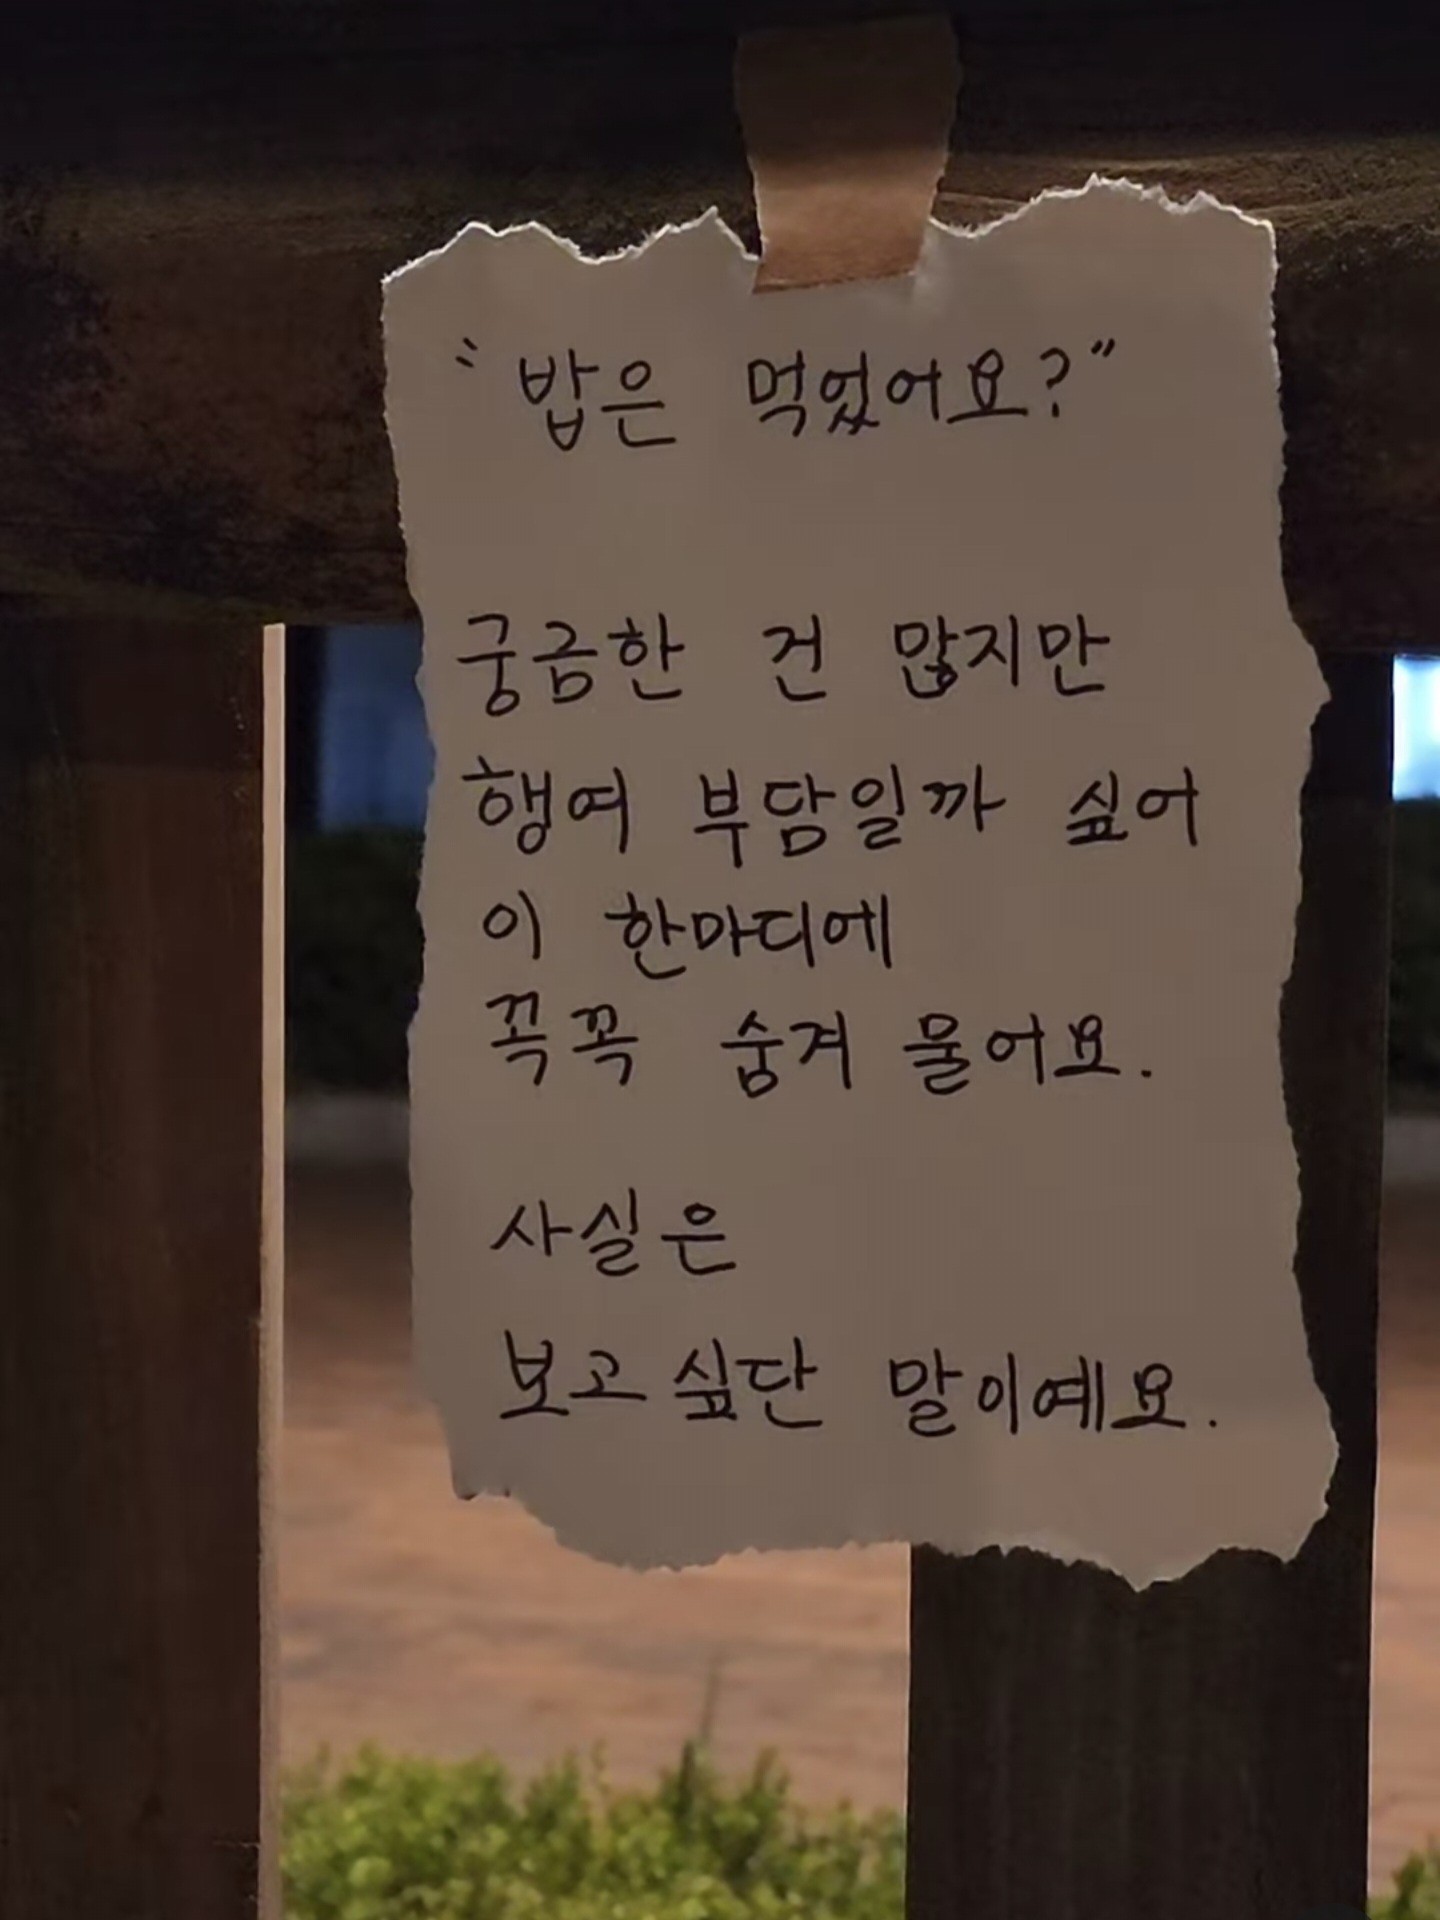 "밥은 먹었어요?"
궁금한 건 많지만
행여 부담일까 싶어
이 한마디에
꼭꼭 숨겨 물어요.
사실은
보고싶단 말이예요.